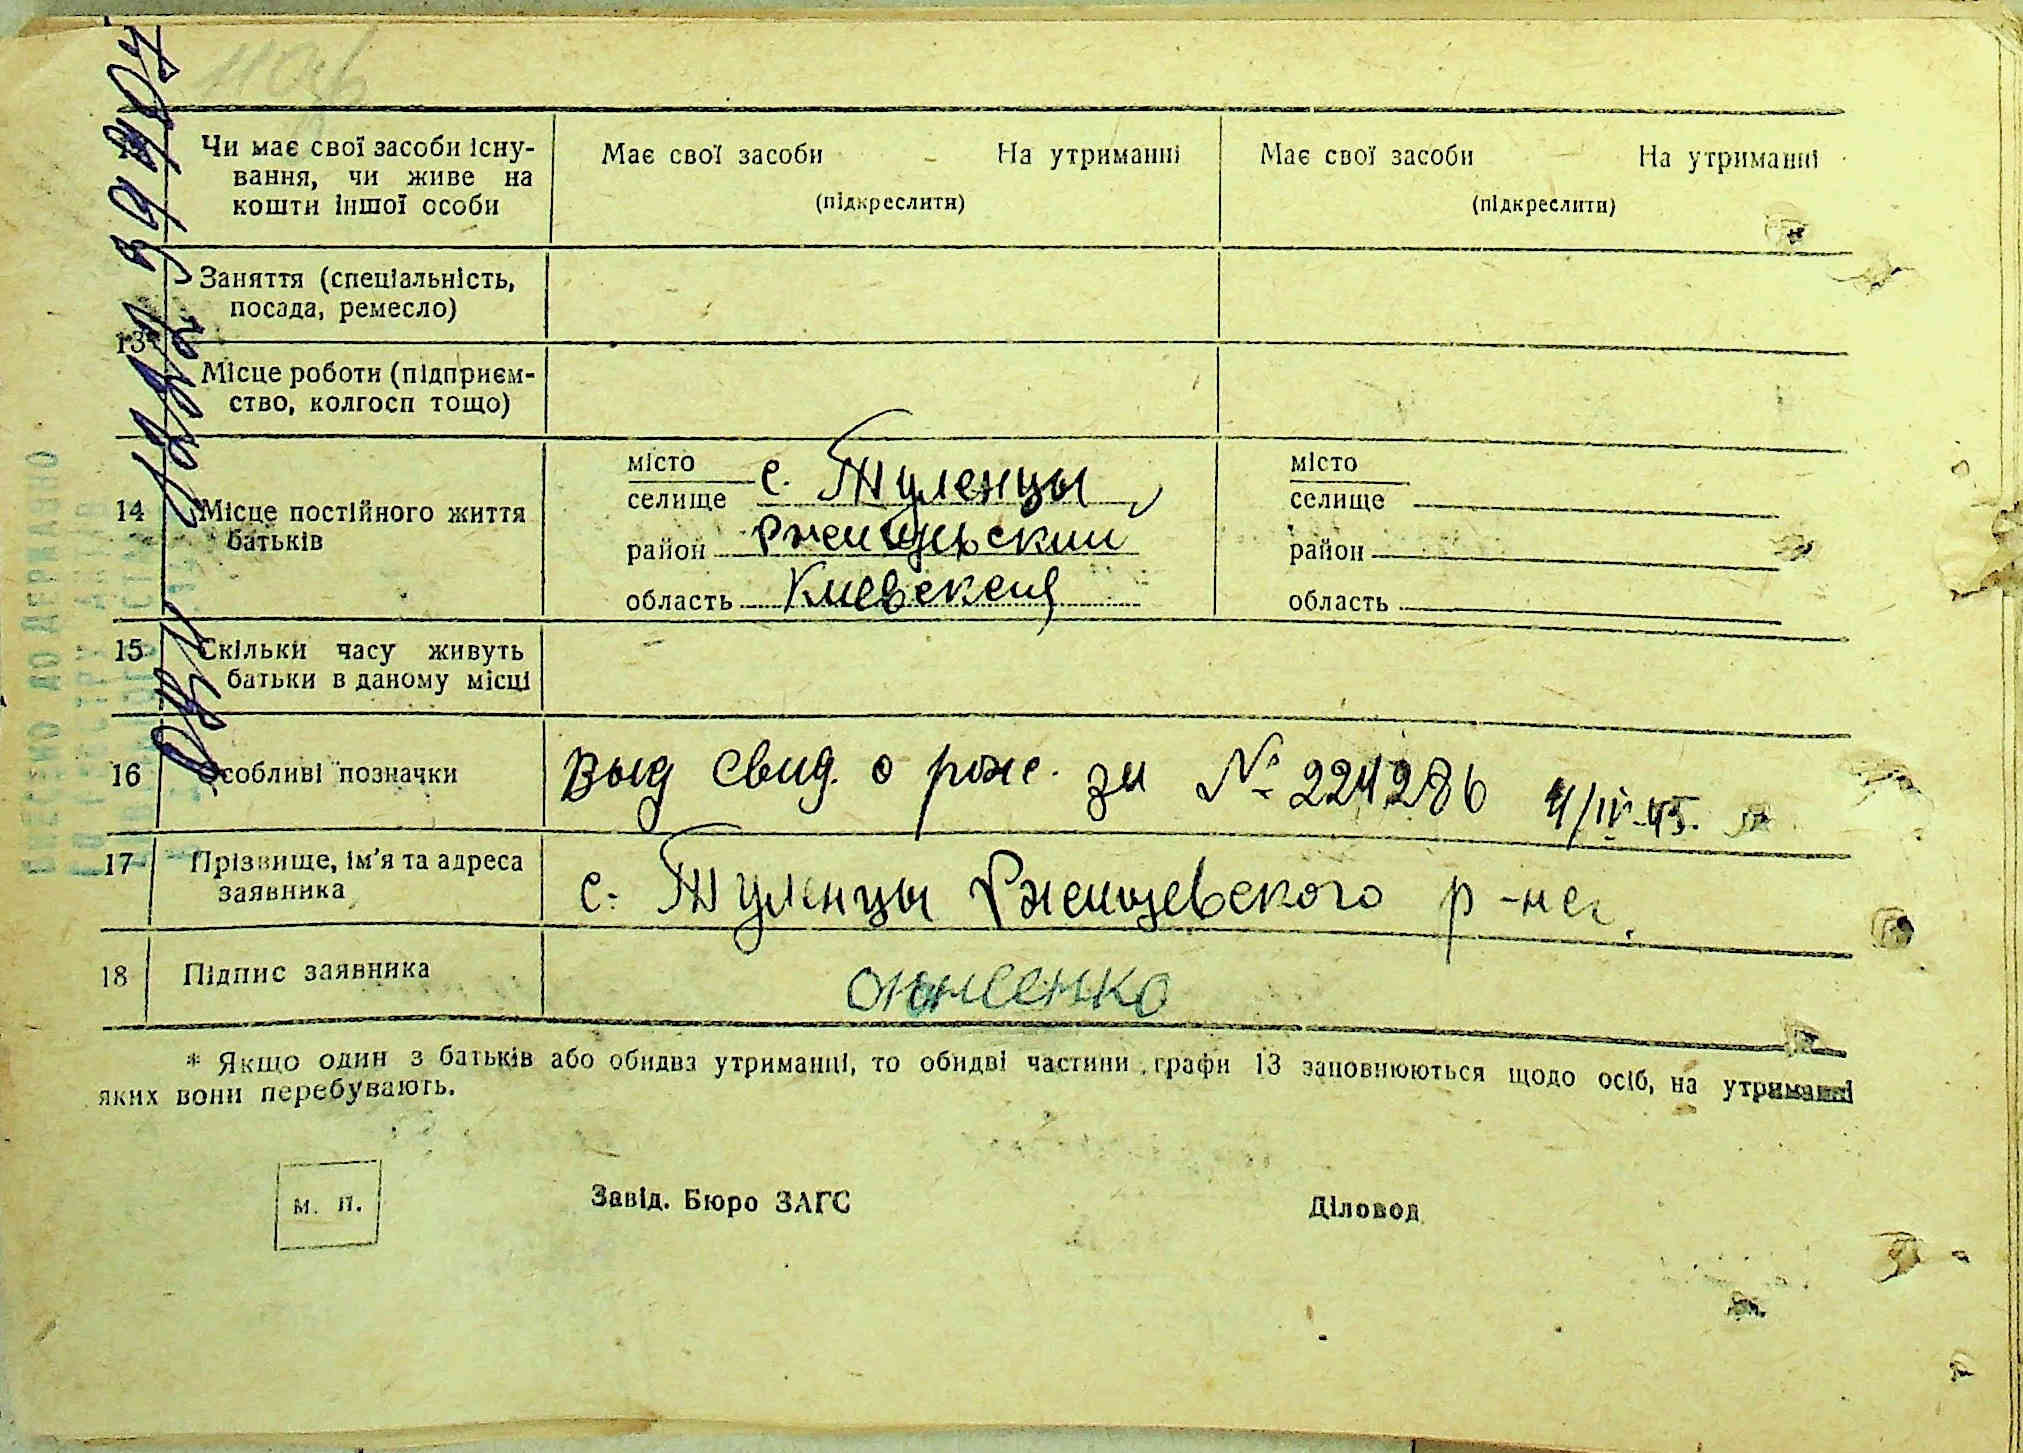 Чи має свої засоби існу-
вання, чи живе на
кошти іншої особи
Має свої засоби На утриманні
(підкреслити)
Має свої засоби На утриманні
(підкреслити)
13
Заняття (спеціальність,
посада, ремесло)
Місце роботи (підприєм-
ство, колгосп тощо)
14 Місце постійного життя
батьків
місто
селище с. Туленцы
район
область Киевская
місто
селище
район
область
15 Скільки часу живуть
батьки в даному місці
16 Особливі позначки
Выд свид. о рож. за № 224286 4/IV-45.
17 Прізвище, ім'я та адреса
заявника
с. Туленцы Ржищевского р-на.
18 Підпис заявника
* Якщо один з батьків або обидва утриманці, то обидві частини графи 13 заповнюються щодо осіб, на утриманні
яких вони перебувають.
м. п.
Завід. Бюро ЗАГС
Діловод
ВНЕСЕНО ДО ДЕРЖАВНО